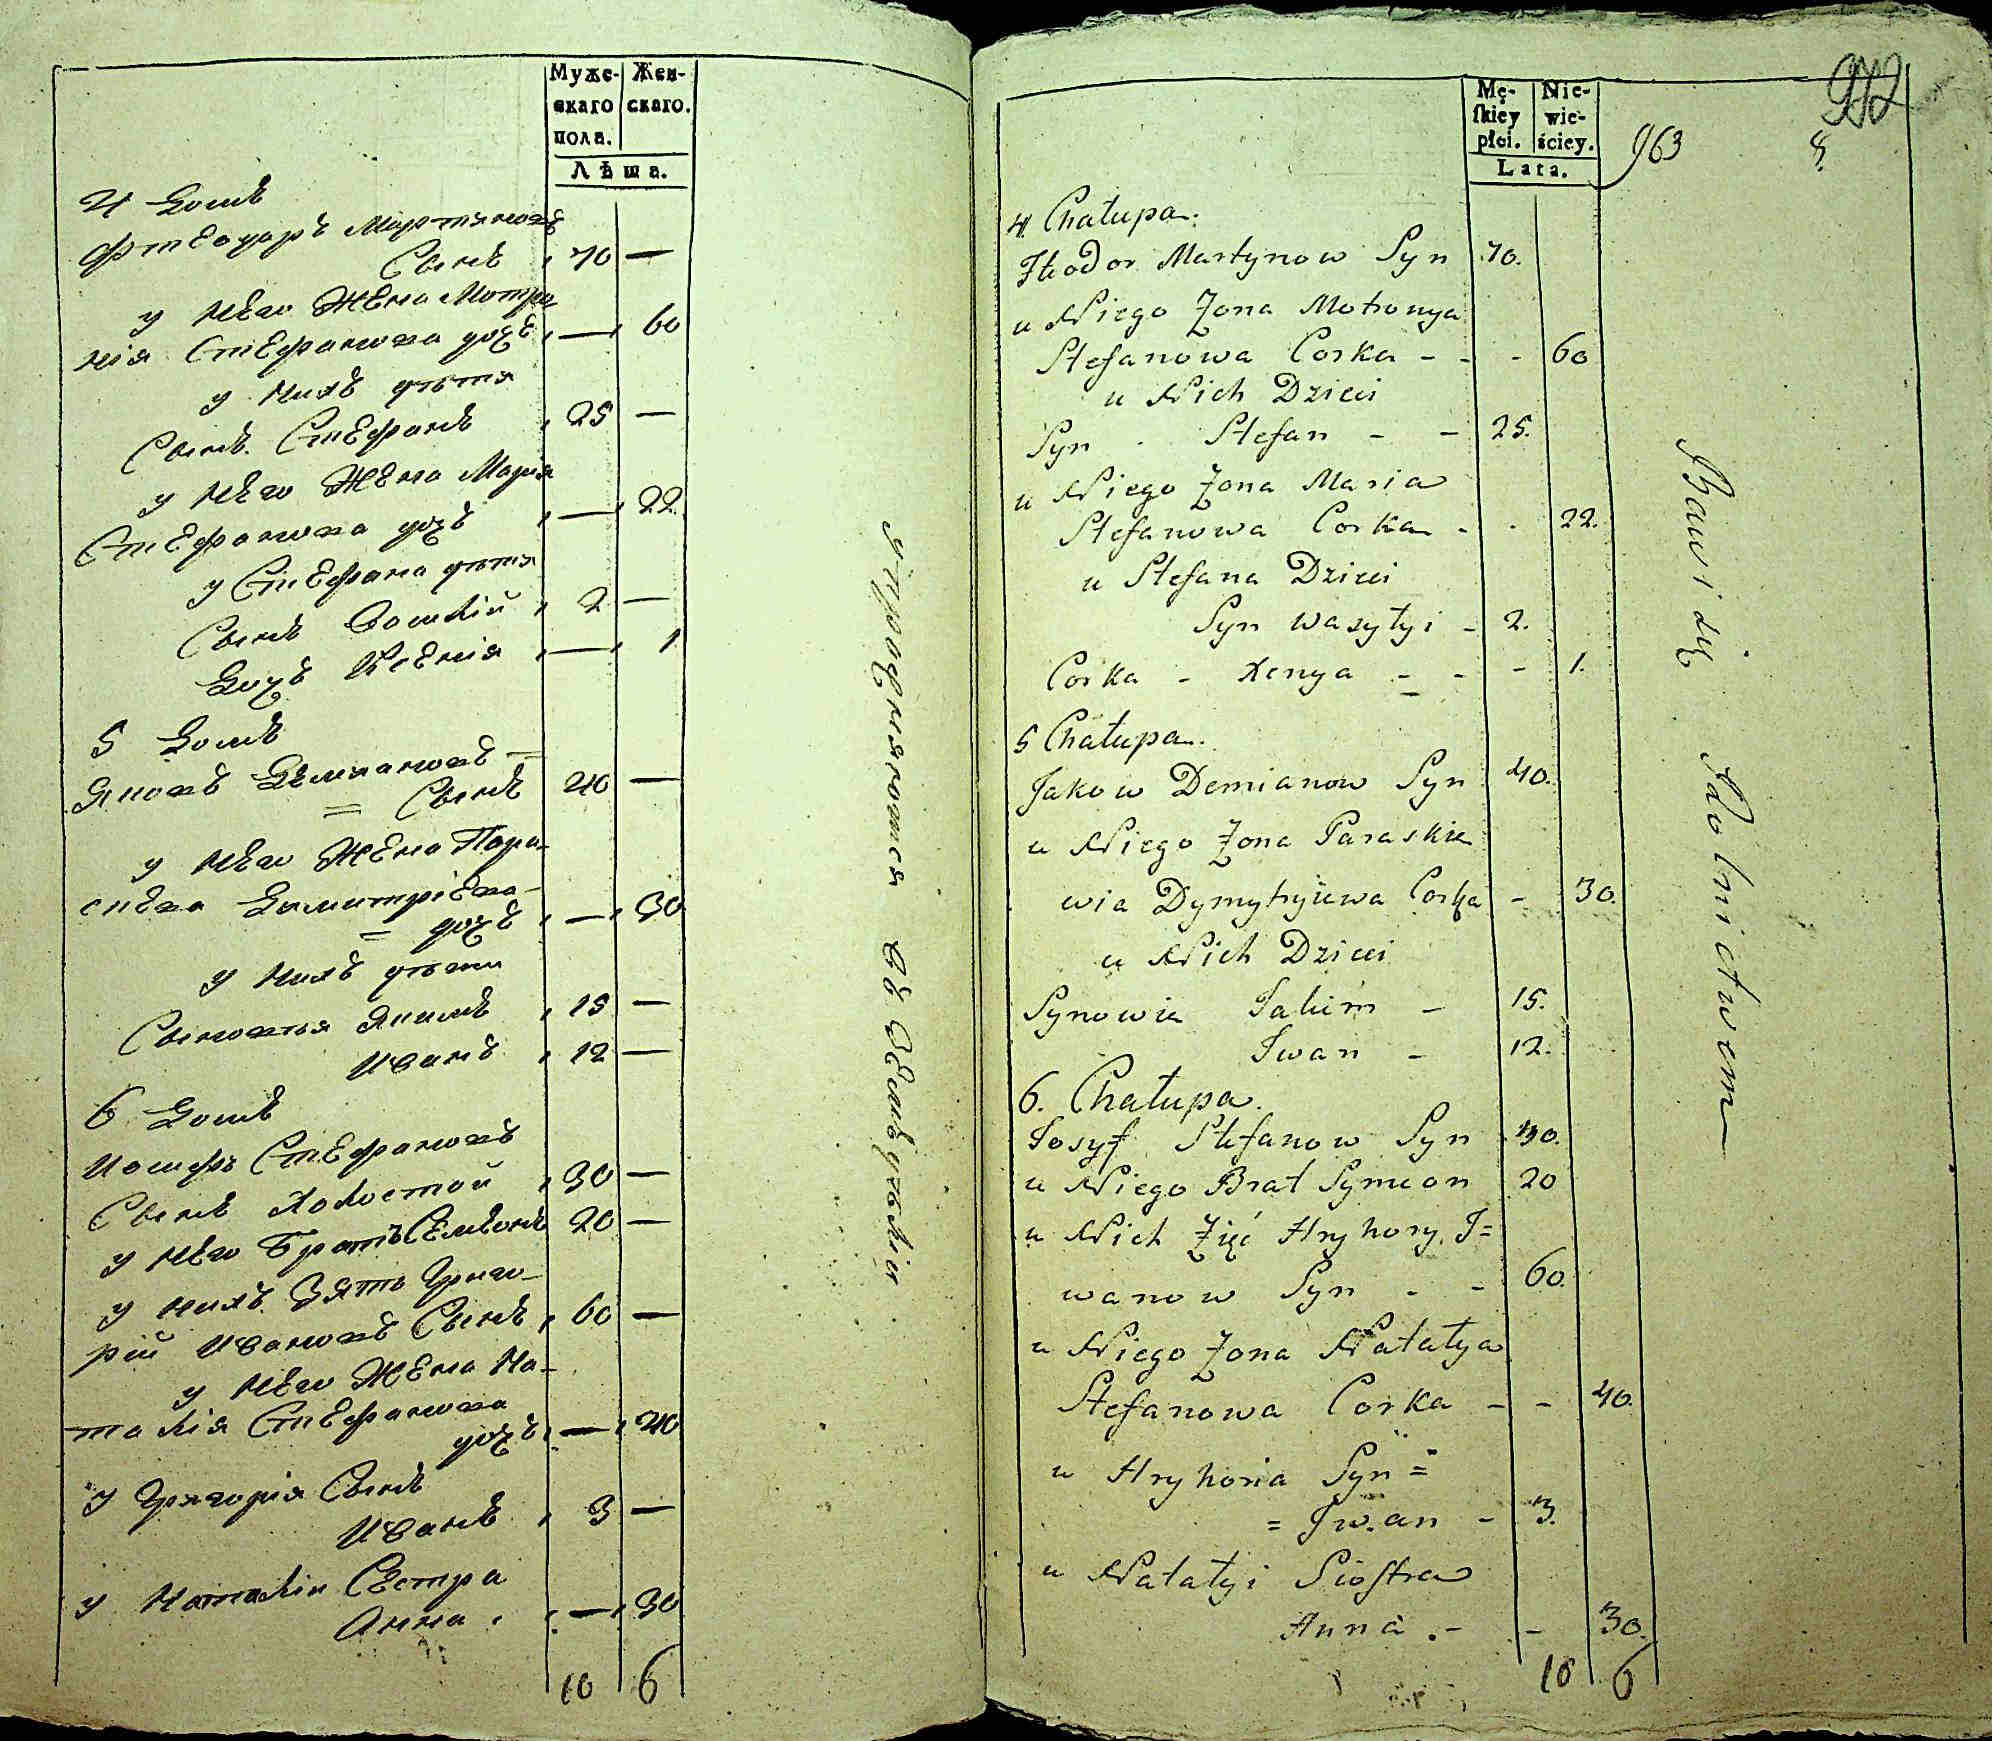 Муже-
скаго
пола.
Жен-
скаго.
Лѣта.
4 Домъ
Фтеодоръ Мартиновъ
Сынъ 70 —
у него Жена Мотро
нія Стефанова дочь — 60
у нихъ дѣти
Сынъ Стефанъ 25 —
у него Жена Марія
Стефанова дочь — 22
у Стефана дѣти
Сынъ 2 —
Дочь Ксенія — 1
5 Домъ
Яковъ Демиановъ —
= Сынъ 40 —
у него Жена Пара-
скева Димитріева-
= дочь — 30
у нихъ дѣти
Сыновья Якимъ 15 —
Иванъ 12 —
6 Домъ
Иосифъ Стефановъ
Сынъ Холостой 30 —
у него Братъ Семіонъ 20 —
у нихъ Зять Григо-
рій Ивановъ Сынъ 60 —
у него Жена На-
талія Стефанова
дочь — 40
у Григорія Сынъ
Иванъ 3 —
у Наталіи Сестра
Анна — 30
10 6
упражняются въ Земледѣліи
Mę-
skiey
płci.
Nie-
wie-
ściey.
Lata.
963
4 Chałupa.
Fteodor Martynow Syn 70.
u Niego Żona Motronya
Stefanowa Corka - - - 60
u Nich Dzieci
Syn - Stefan - - 25.
u Niego Żona Maria
Stefanowa Corka - - 22.
u Stefana Dzieci
Syn Wasyłyi - 2.
Corka - Xenya - - - 1.
5 Chałupa.
Jakow Demianow Syn 40.
u Niego Żona Paraskie
wia Dymytryiewa Corka - 30.
u Nich Dzieci
Synowie Jakim - 15.
Iwan - 12.
6. Chałupa.
Josyf Stefanow Syn 30.
u Niego Brat Symeon 20
u Nich Zięć Hryhory I=
wanow Syn - - 60.
u Niego Żona Natalya
Stefanowa Corka - - 40.
u Hryhoria Syn =
= Iwan - 3.
u Natalyi Siostra
Anna. - - 30.
10 6
Bawi się Rolnictwem